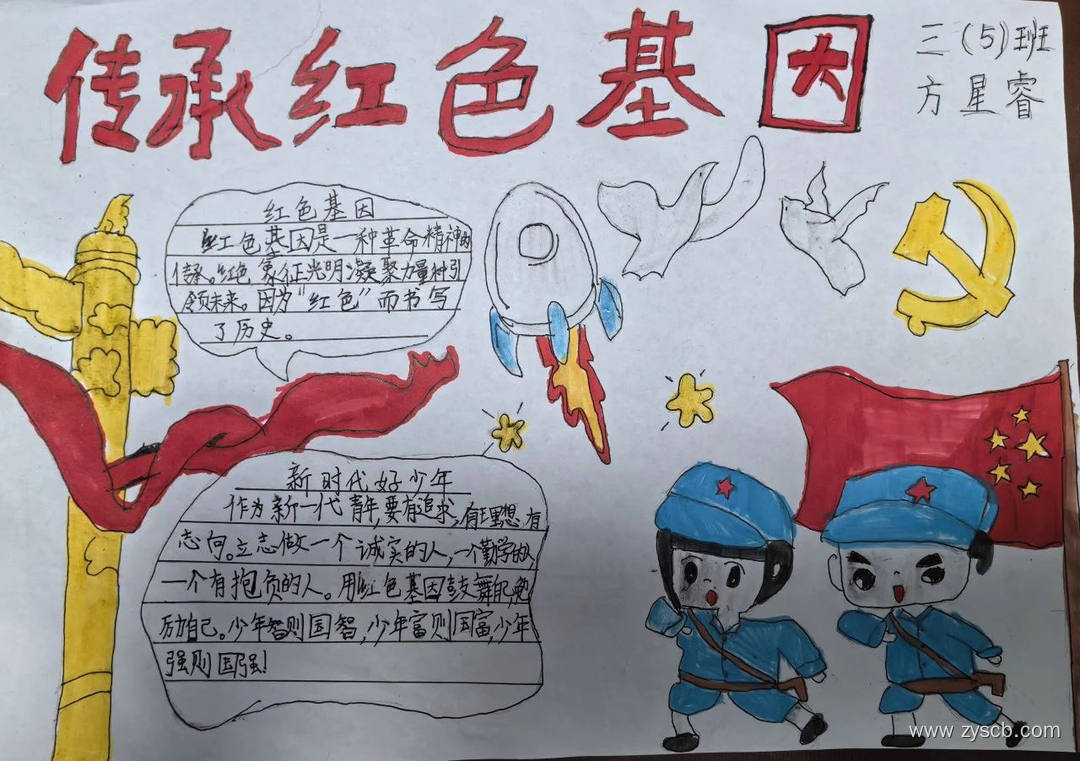 传承红色基因
三(5)班
方星睿
红色基因
红色基因是一种革命精神的
传承。红色象征光明,凝聚力量和引
领未来。因为“红色”而书写
了历史。
新时代好少年
作为新一代青年,要有追求,有理想有
志向。立志做一个诚实的人,一个勤学的人
一个有抱负的人。用红色基因鼓舞
励自己。少年智则国智,少年富则国富,少年
强则国强!
www.zyscb.com